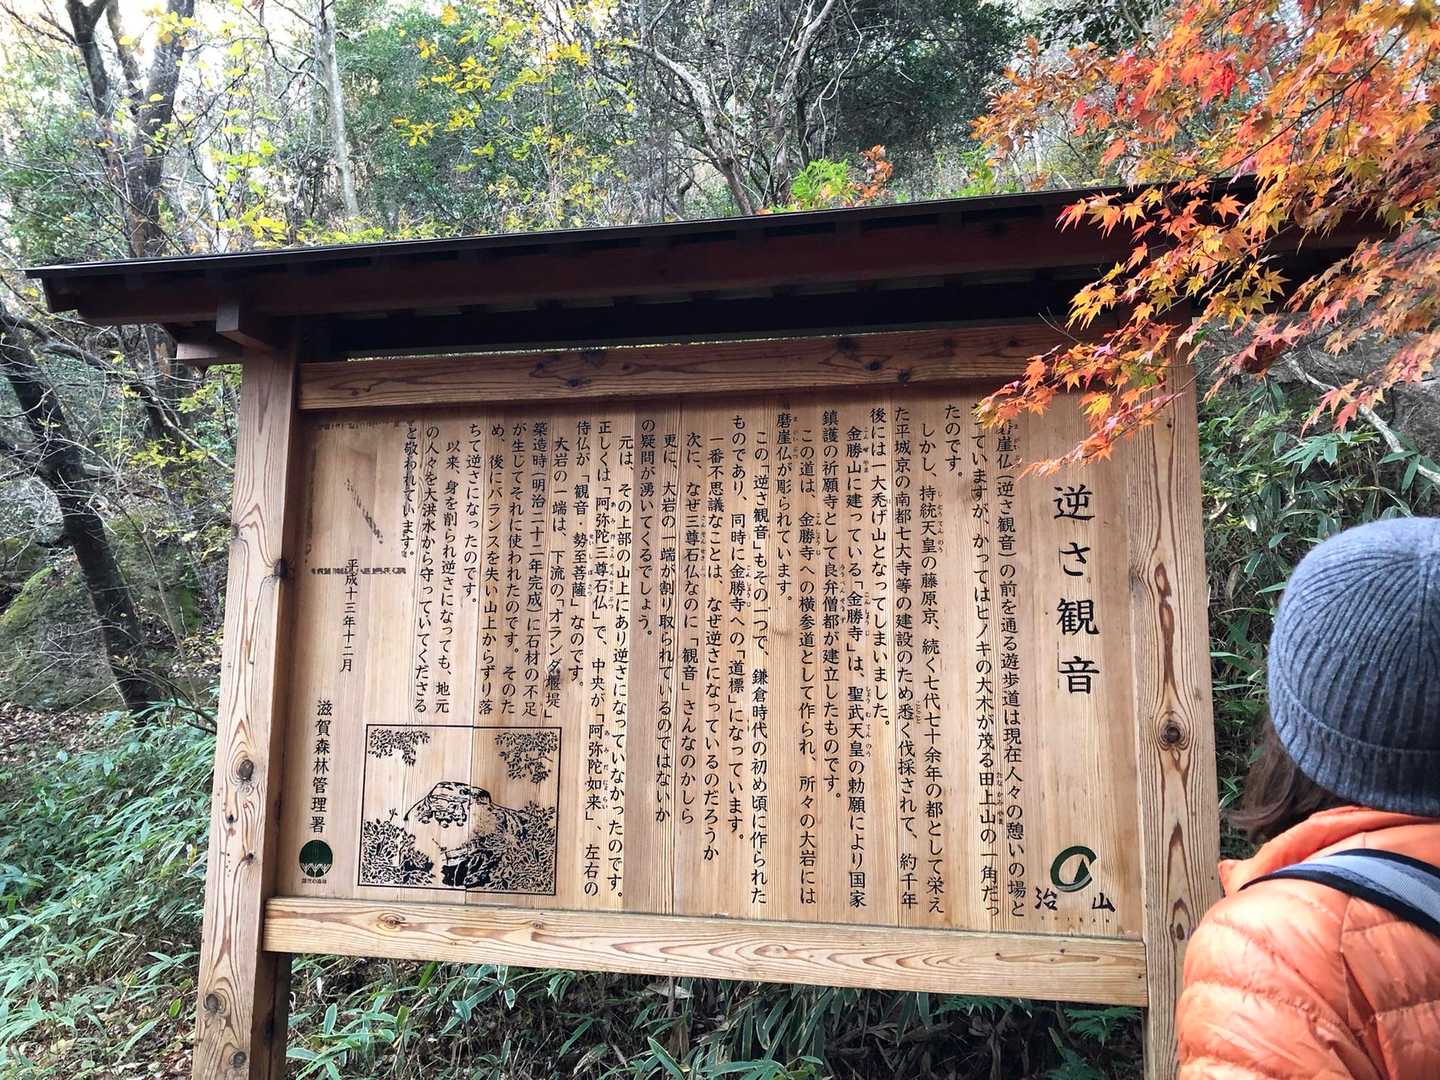 逆さ観音
磨崖仏(逆さ観音)の前を通る遊歩道は現在人々の憩いの場と
っていますが、かってはヒノキの大木が茂る田上山の一角だっ
たのです。
しかし、持統天皇の藤原京、続く七代七十余年の都として栄え
た平城京の南都七大寺等の建設のため悉く伐採されて、約千年
後には一大禿げ山となってしまいました。
金勝山に建っている「金勝寺」は、聖武天皇の勅願により国家
鎮護の祈願寺として良弁僧都が建立したものです。
この道は、金勝寺への横参道として作られ、所々の大岩には
磨崖仏が彫られています。
この「逆さ観音」もその一つで、鎌倉時代の初め頃に作られた
ものであり、同時に金勝寺への「道標」になっています。
一番不思議なことは、なぜ逆さになっているのだろうか
次に、なぜ三尊石仏なのに「観音」さんなのかしら
更に、大岩の一端が割り取られているのではないか
の疑問が湧いてくるでしょう。
元は、その上部の山上にあり逆さになっていなかったのです。
正しくは「阿弥陀三尊石仏」で、中央が「阿弥陀如来」、左右の
侍仏が、「観音・勢至菩薩」なのです。
大岩の一端は、下流の「オランダ堰堤」
築造時(明治二十二年完成)に石材の不足
が生じてそれに使われたのです。そのた
め、後にバランスを失い山上からずり落
ちて逆さになったのです。
以来、身を削られ逆さになっても、地元
の人々を大洪水から守っていてくださる
を敬われています。
平成十三年十二月
滋賀森林管理署
治山
CHISAN